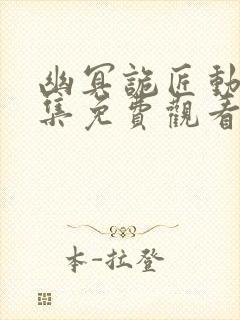 幽冥詭匠動
集免費觀看
本-拉登